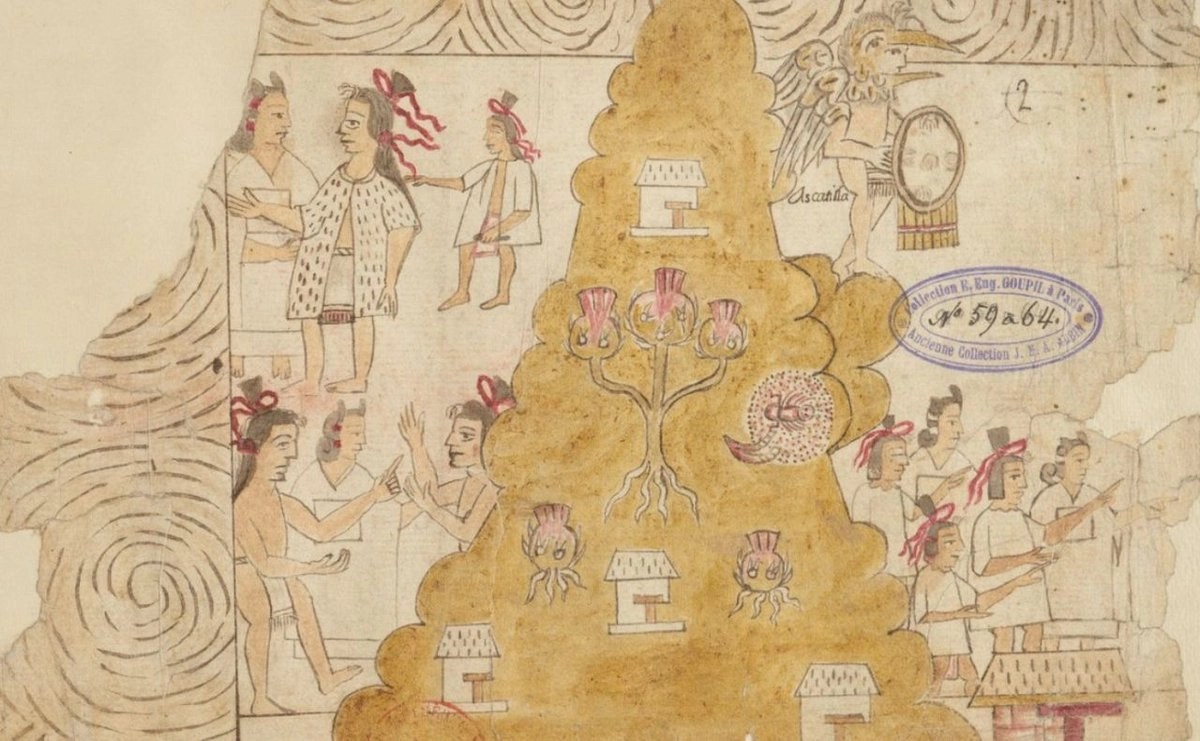 (2
Ascatilla
Collection E. Eng. GOUPIL à Paris
Nº 59 à 64.
Ancienne Collection J. E. A. AUBIN